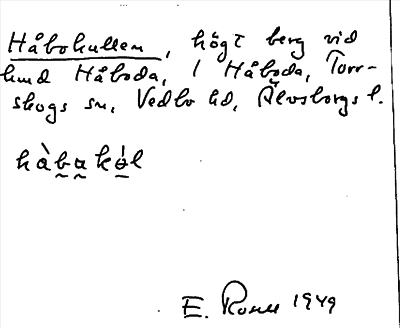 Håbokullen, högt berg vid
hmd Håboda, 1 Håboda, Torr-
skogs sn, Vedbo hd, Älvsborgs l.
hàbakɵ́l
E. Rosell 1949